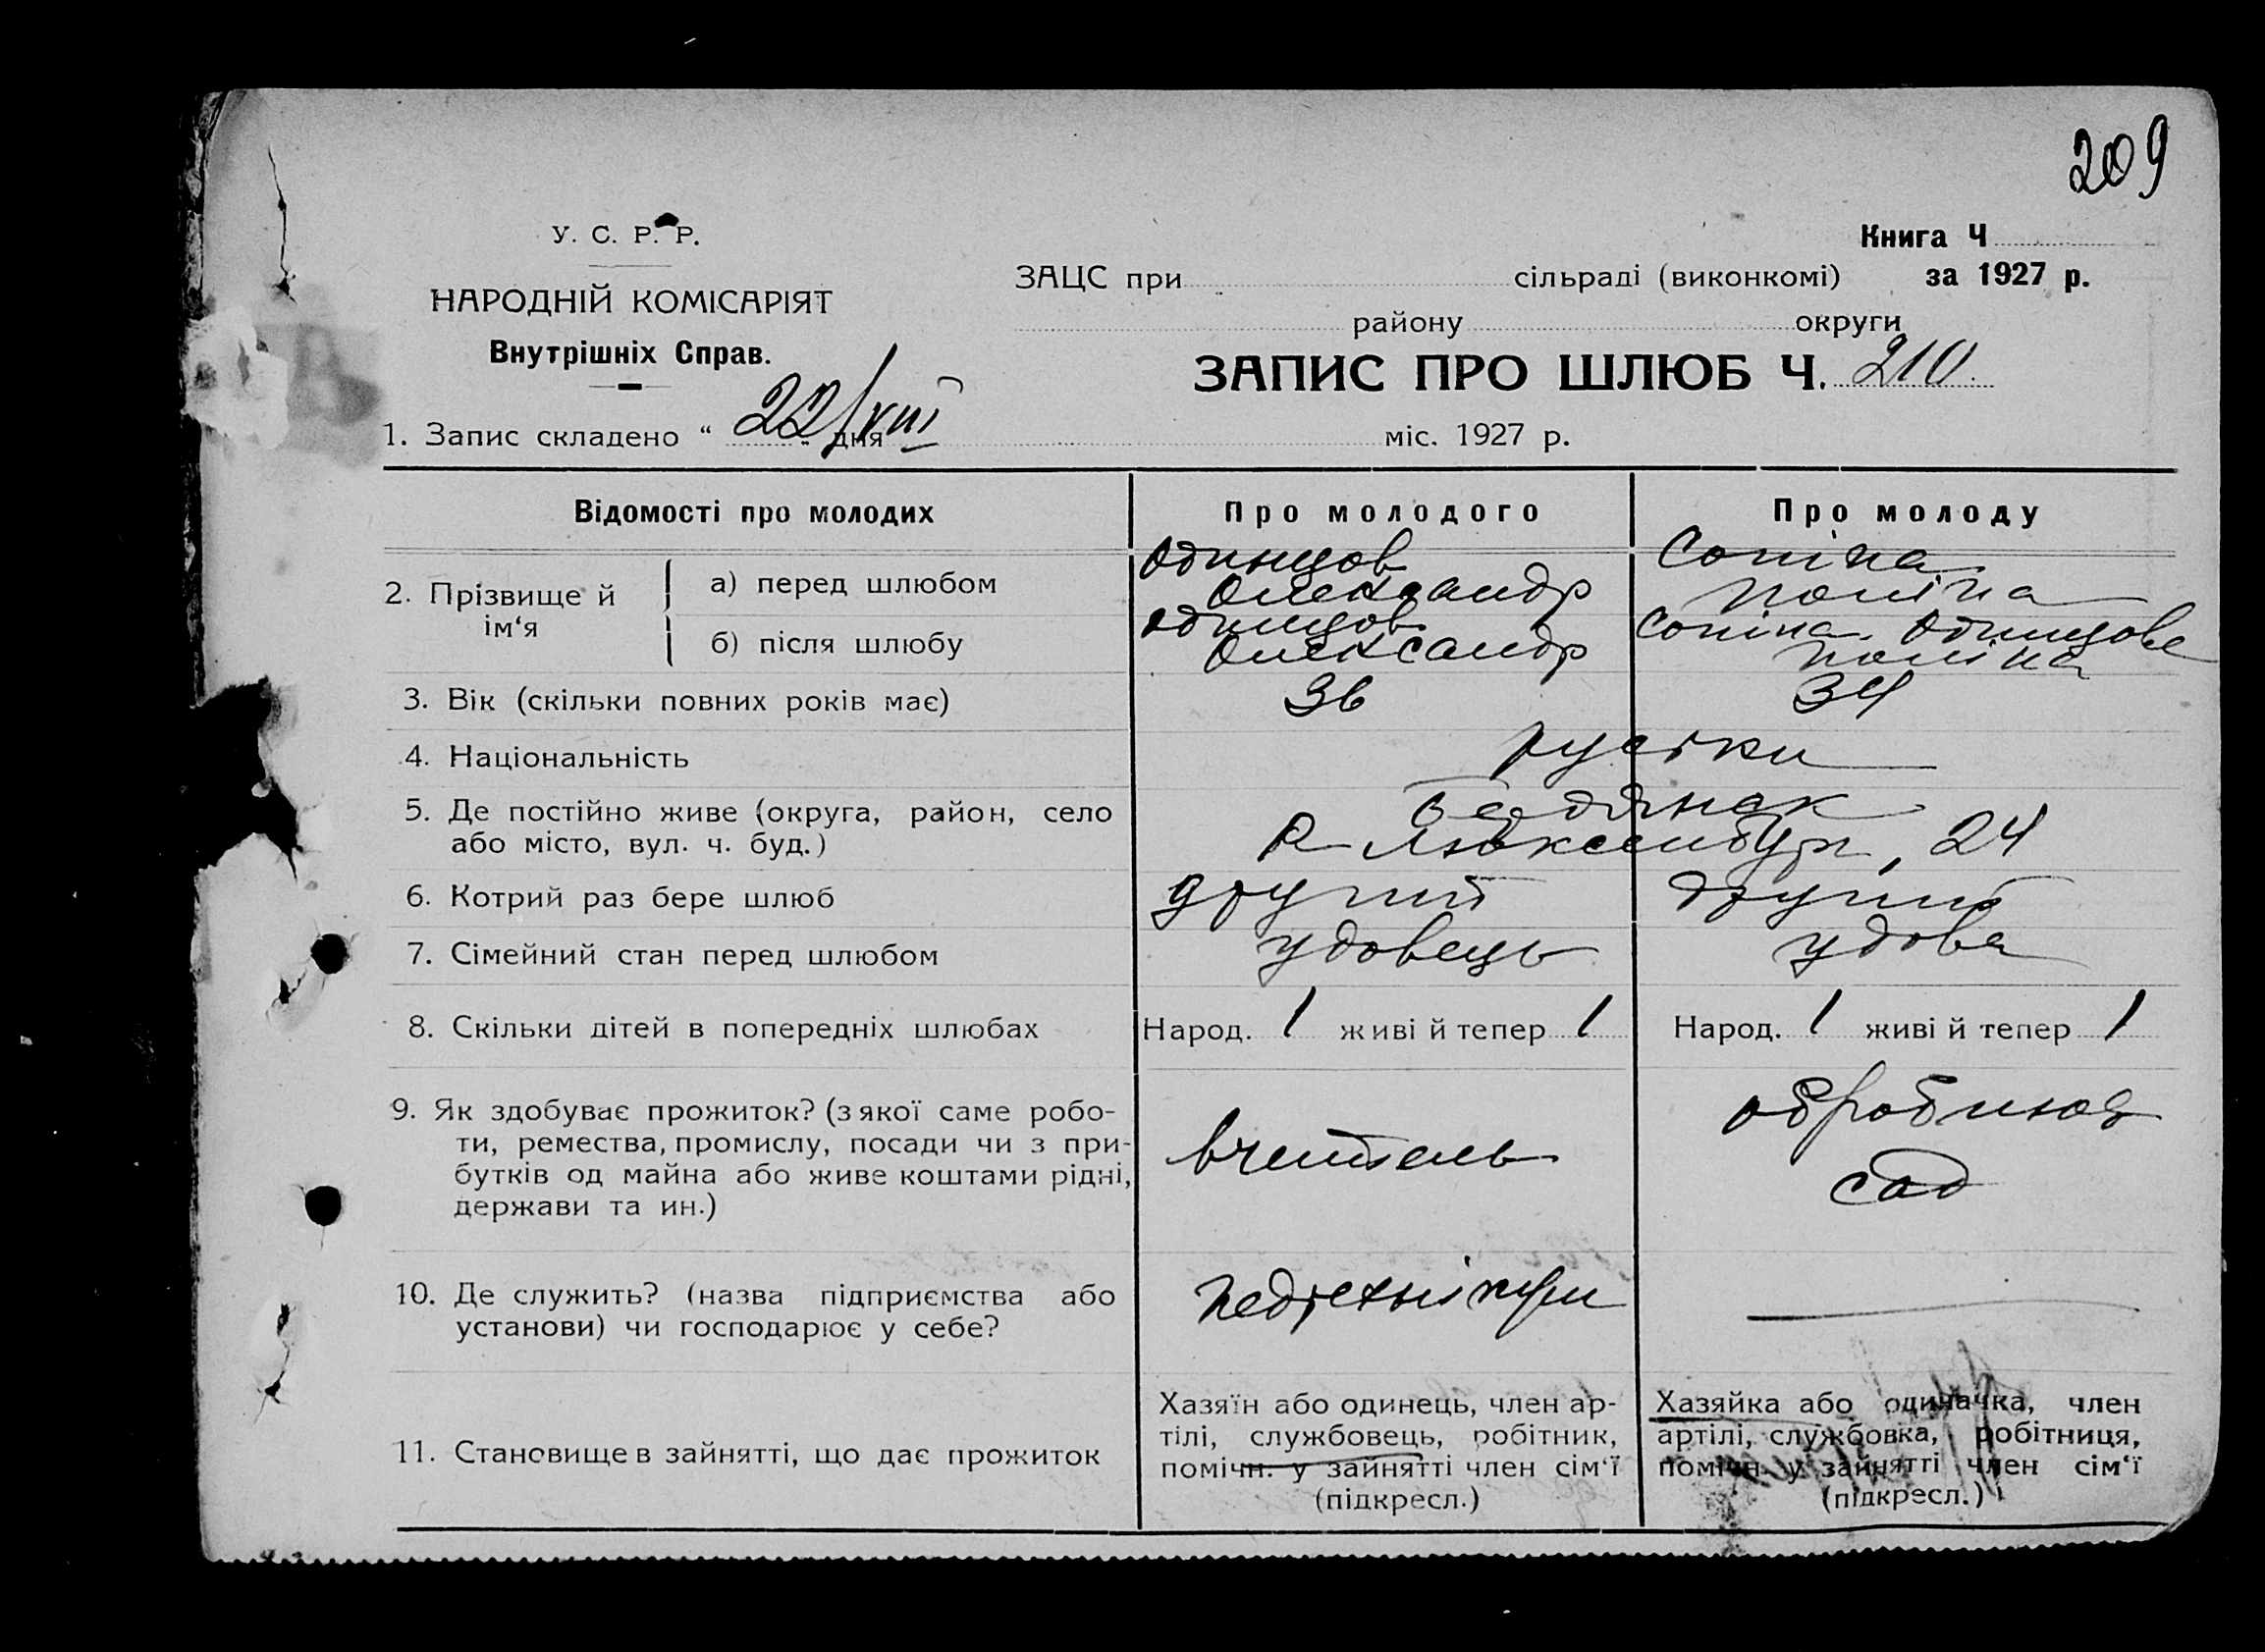 209
У. С. Р. Р.
Книга Ч
ЗАЦС при сільраді (виконкомі) за 1927 р.
НАРОДНІЙ КОМІСАРІЯТ
району округи
Внутрішніх Справ.
ЗАПИС ПРО ШЛЮБ Ч. 210
1. Запис складено “ 22/VIII „ дня міс. 1927 р.
Відомості про молодих
Про молодого
Про молоду
2. Прізвище й ім‘я
а) перед шлюбом
Одинцов
Олександр
Соніна
Поліна
б) після шлюбу
Одинцов
Олександр
Соніна Одинцова
Поліна
3. Вік (скільки повних років має)
36
34
4. Національність
руські
5. Де постійно живе (округа, район, село
або місто, вул. ч. буд.)
Бердянськ
Р Люксембург, 24
6. Котрий раз бере шлюб
другий
другий
7. Сімейний стан перед шлюбом
удовець
удова
8. Скільки дітей в попередніх шлюбах
Народ. 1 живі й тепер 1
Народ. 1 живі й тепер 1
9. Як здобуває прожиток? (з якої саме робо-
ти, ремества, промислу, посади чи з при-
бутків од майна або живе коштами рідні,
держави та ин.)
вчитель
сад
10. Де служить? (назва підприємства або
установи) чи господарює у себе?
Педтехнікум
11. Становище в зайнятті, що дає прожиток
Хазяїн або одинець, член ар-
тілі, службовець, робітник,
помічн. у зайнятті член сім‘ї
(підкресл.)
Хазяйка або одиначка, член
артілі, службовка, робітниця,
помічн. у зайнятті член сім‘ї
(підкресл.)